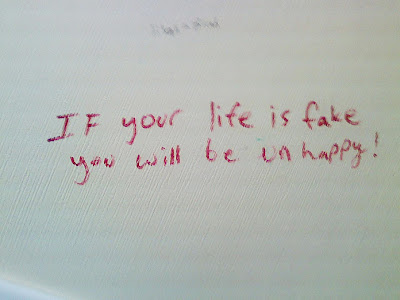 IF your life is fake
you will be unhappy!